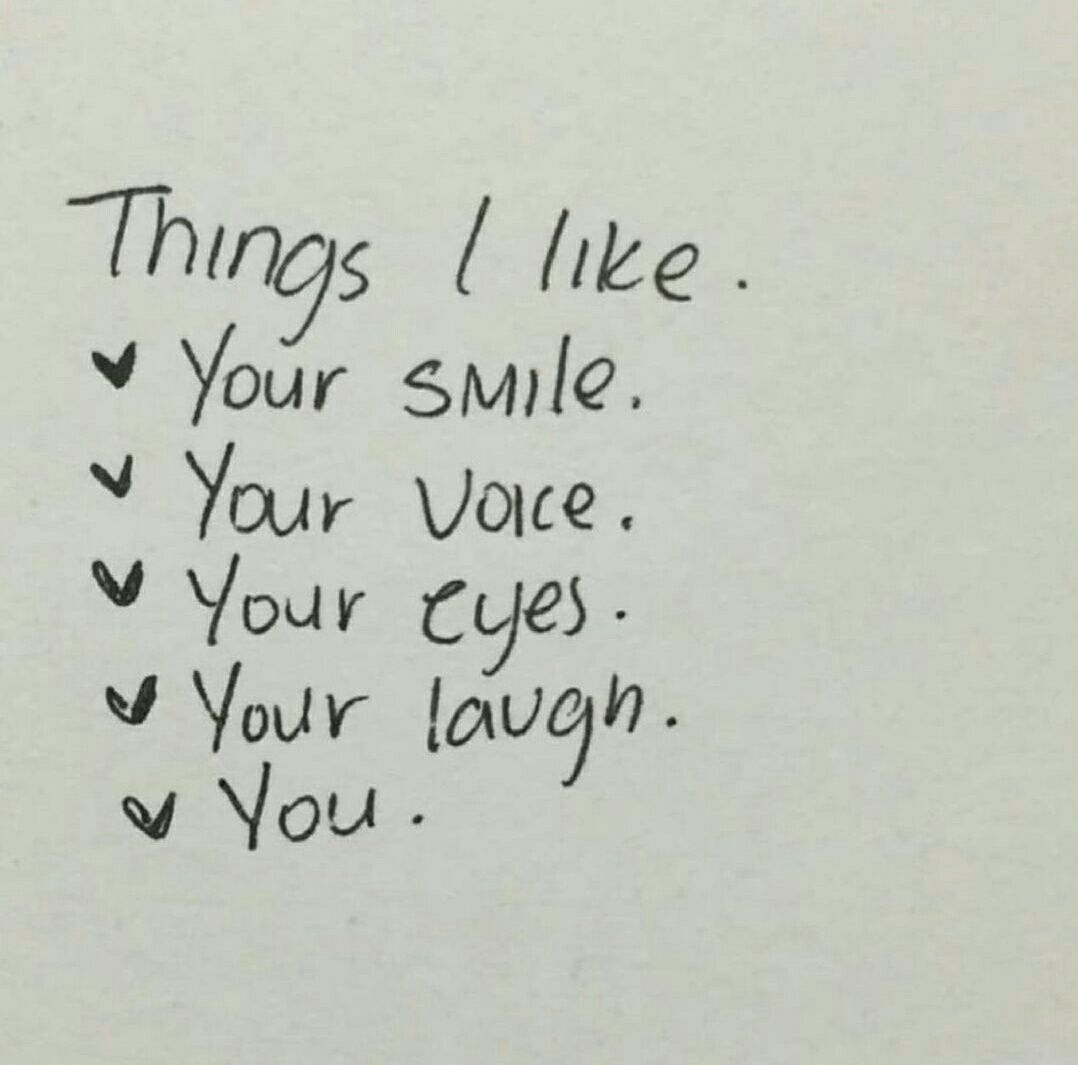 Things I like.
Your smile.
Your voice.
Your eyes.
Your laugh.
You.